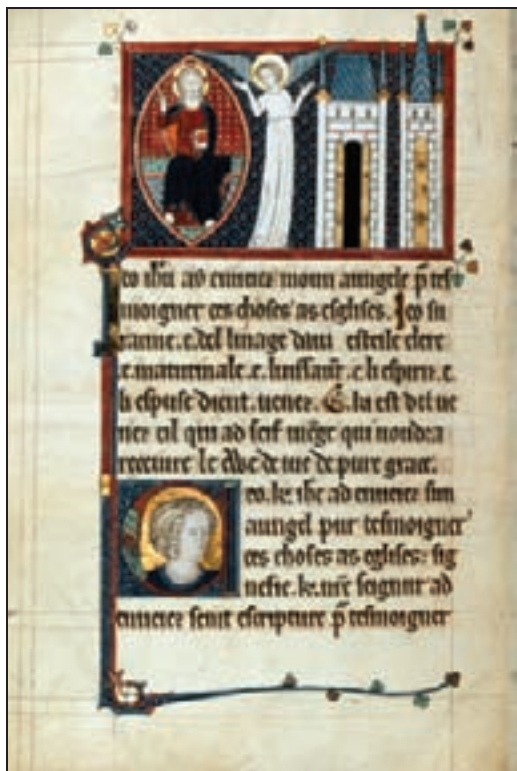 eo ihu ad enveie moun aungele p tes
moigner ces choses as esglises. Jeo su
racine. e. del linage davi esteile clere
e. matutinale. e. luissaunt. e. li espirit. e.
li espuse dient. venez. E. est del ve
nez cil qui ad seif qui voudra
le de vie de pure grace.
eo. ke. ihc ad enveie sun
aungel pur tesmoigner
ces choses as eglises: sig
nefie. ke. nre seignur ad
enveie seint escripture p tesmoigner